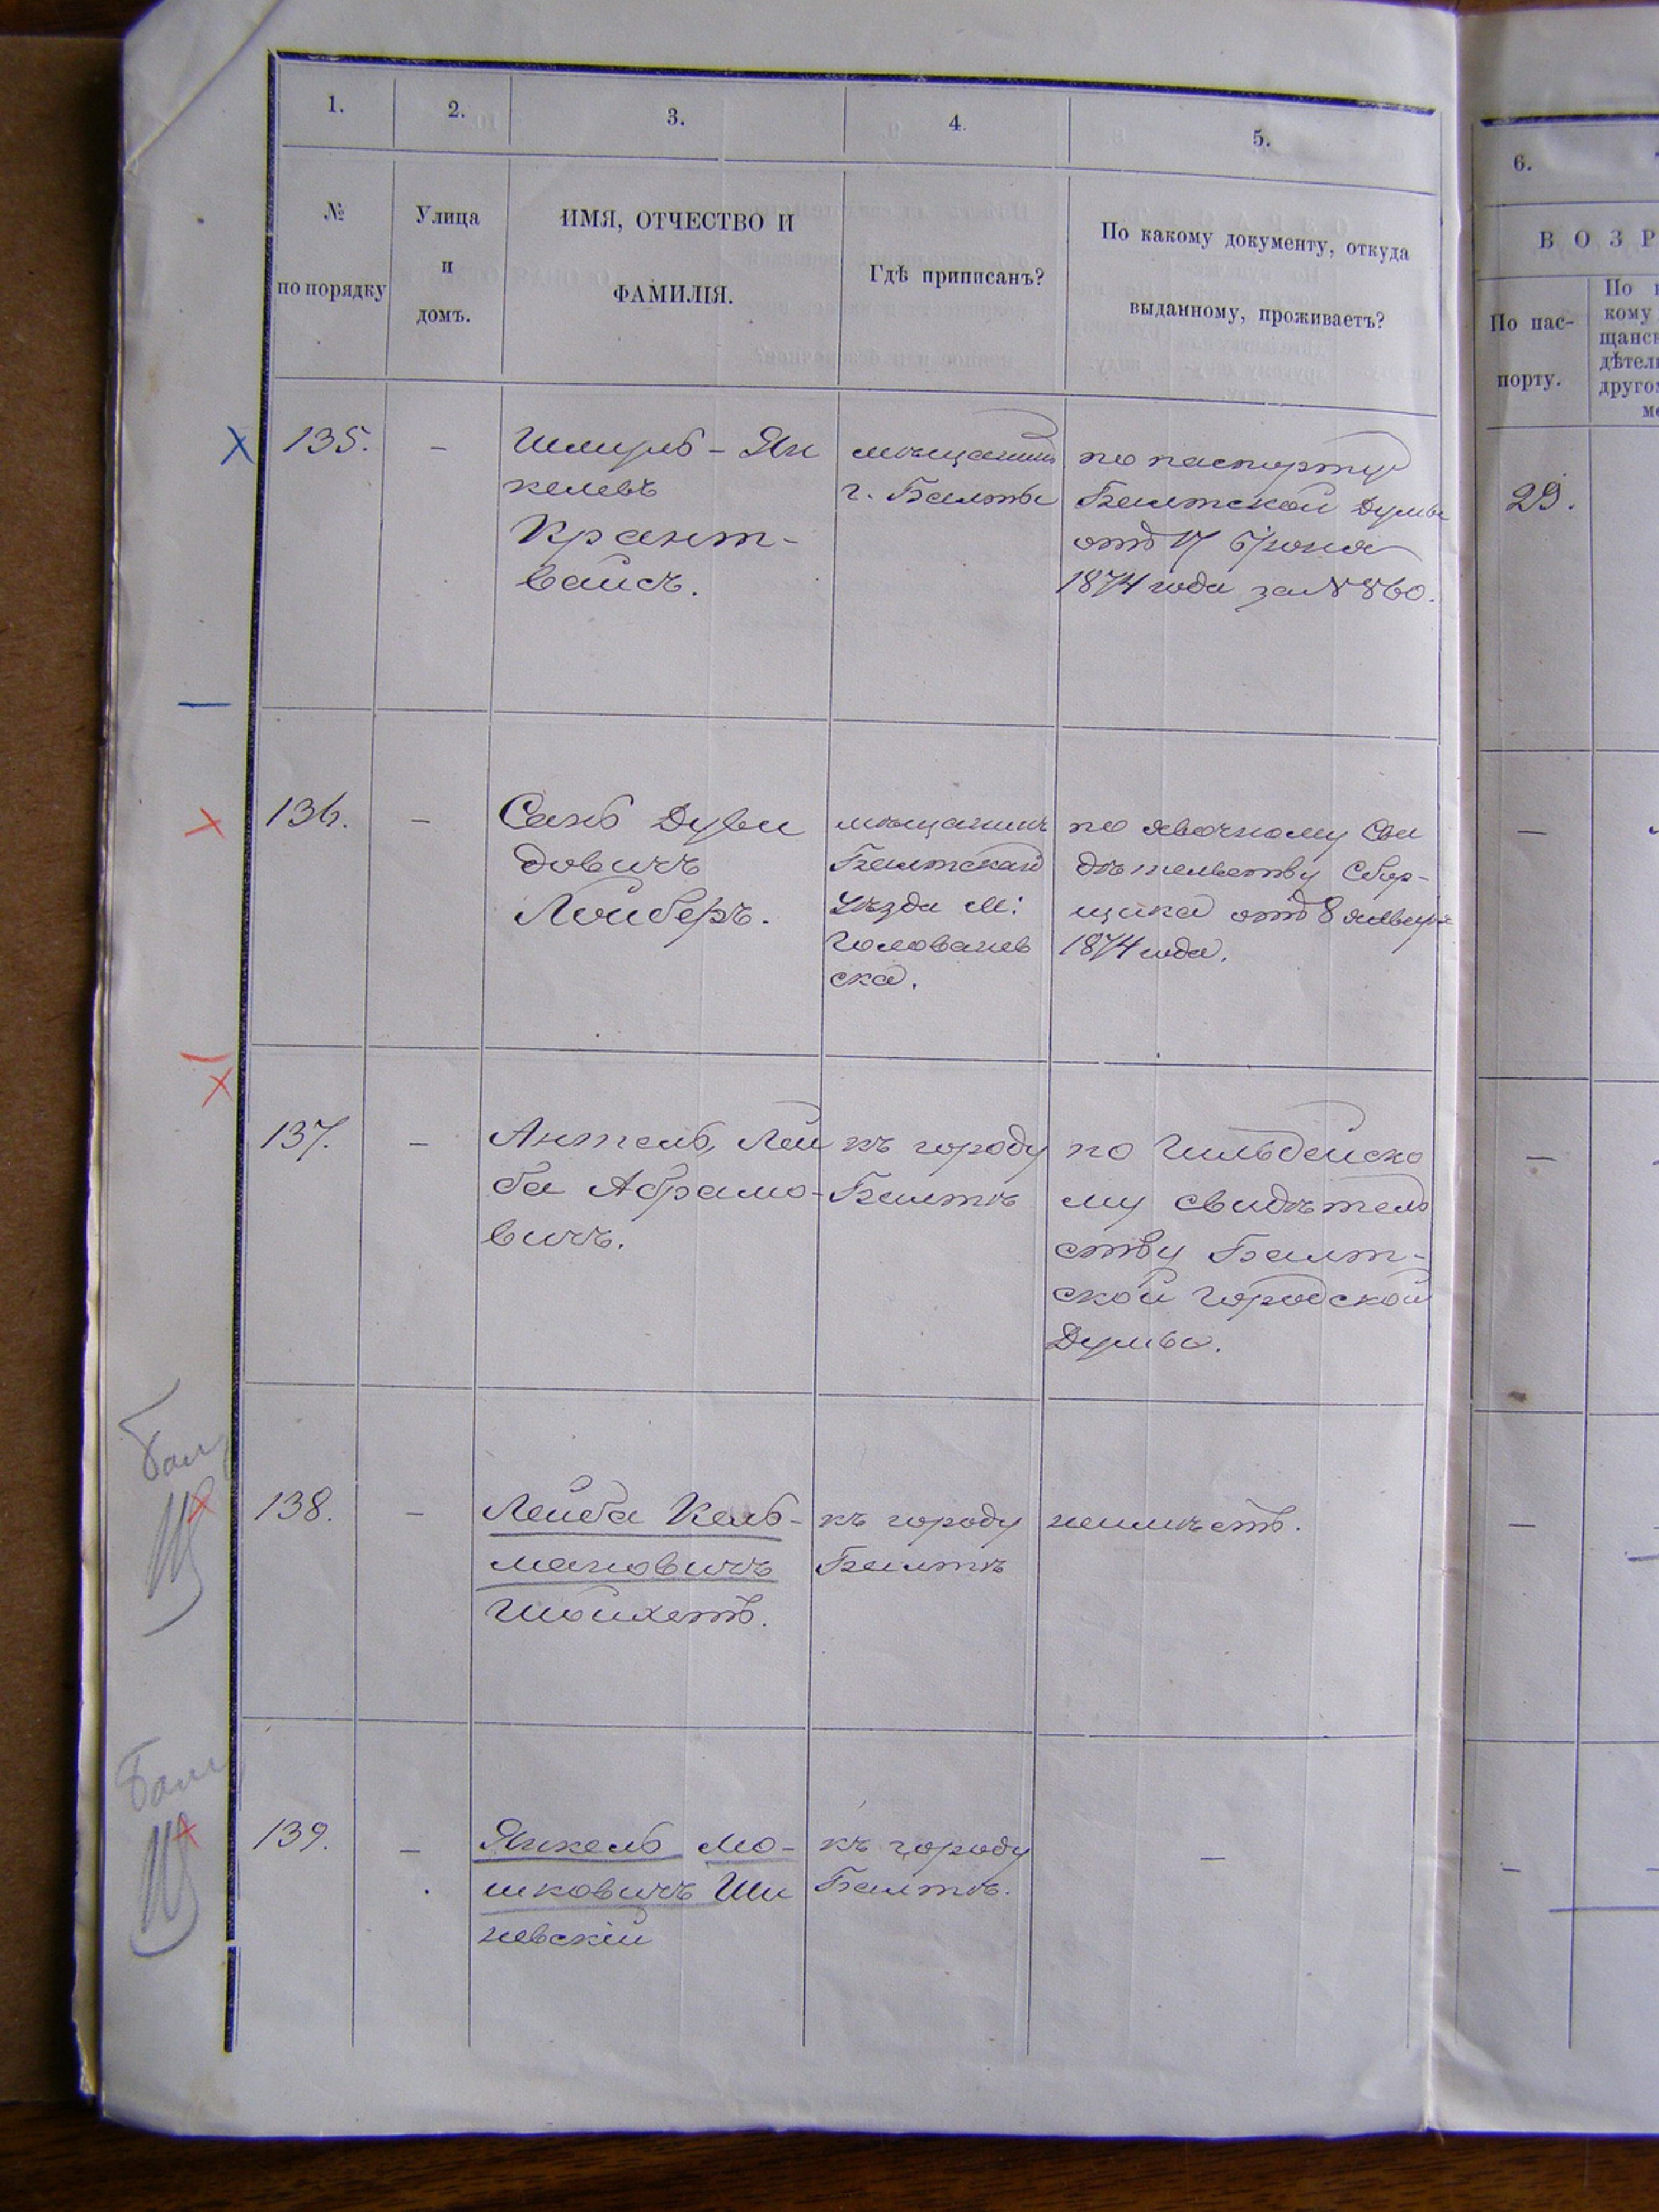 1.
2.
3.
4.
5.
6.
№
по порядку
Улица
и
домъ.
ИМЯ, ОТЧЕСТВО И
ФАМИЛІЯ.
Гдѣ приписанъ?
По какому документу, откуда
выданному, проживаетъ?
ВОЗР
По пас-
порту.
По
кому
щанск
дѣтел
друго
135.
–
Шмуль - Ян
келевъ
Крант-
вайсъ.
мѣщанинъ
г. Балты
по паспорту
Балтской Думы
отъ 17 Іюня
1874 года за № 860.
29.
136.
–
Сань Дуви
довичъ
Лойберъ.
мѣщанинъ
Балтскаго
уѣзда м:
Голованев
ска.
по явочному Сви
дѣтельству Сбор-
щика отъ 8 января
1874 года.
–
137.
–
Антель, Лей
ба Абрамо-
вичъ.
къ городу
Балтѣ
по Гильдейско
му свидѣтель
ству Балт-
ской городской
Думы.
–
138.
–
Лейба Кель-
мановичъ
Шойхетъ.
къ городу
Балтѣ
неимѣетъ.
–
139.
–
Янкель Мо-
шковичъ Ши
невскій
къ городу
Балтѣ.
–
–